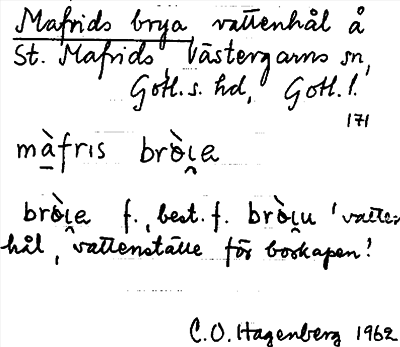 Mafrids brya vattenhål å
St. Mafrids Västergarns sn,
Gotl. s. hd, Gotl. l.
171
màfris bròi̯a
bròi̯a f., best. f. bròi̯u 'vatten-
hål, vattenställe för boskapen'
C. O. Hagenberg 1962